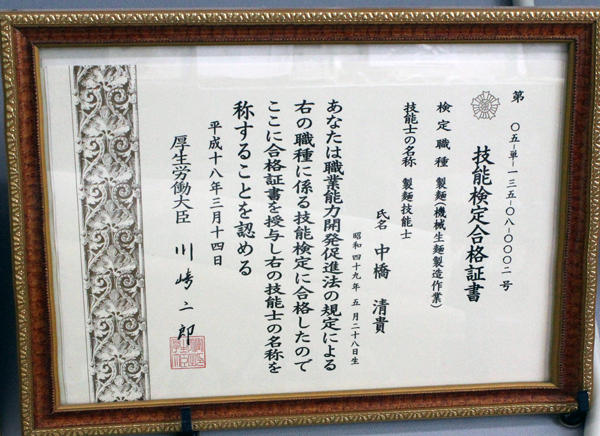 第〇五-単-一三五-〇八-〇〇〇二号
技能検定合格証書
検定職種 製麺(機械生麺製造作業)
技能士の名称 製麺技能士
氏名 中橋 清貴
昭和四十九年 五月二十八日生
あなたは職業能力開発促進法の規定による
右の職種に係る技能検定に合格したので
ここに合格証書を授与し右の技能士の名称を
称することを認める
平成十八年三月十四日
厚生労働大臣 川崎二郎